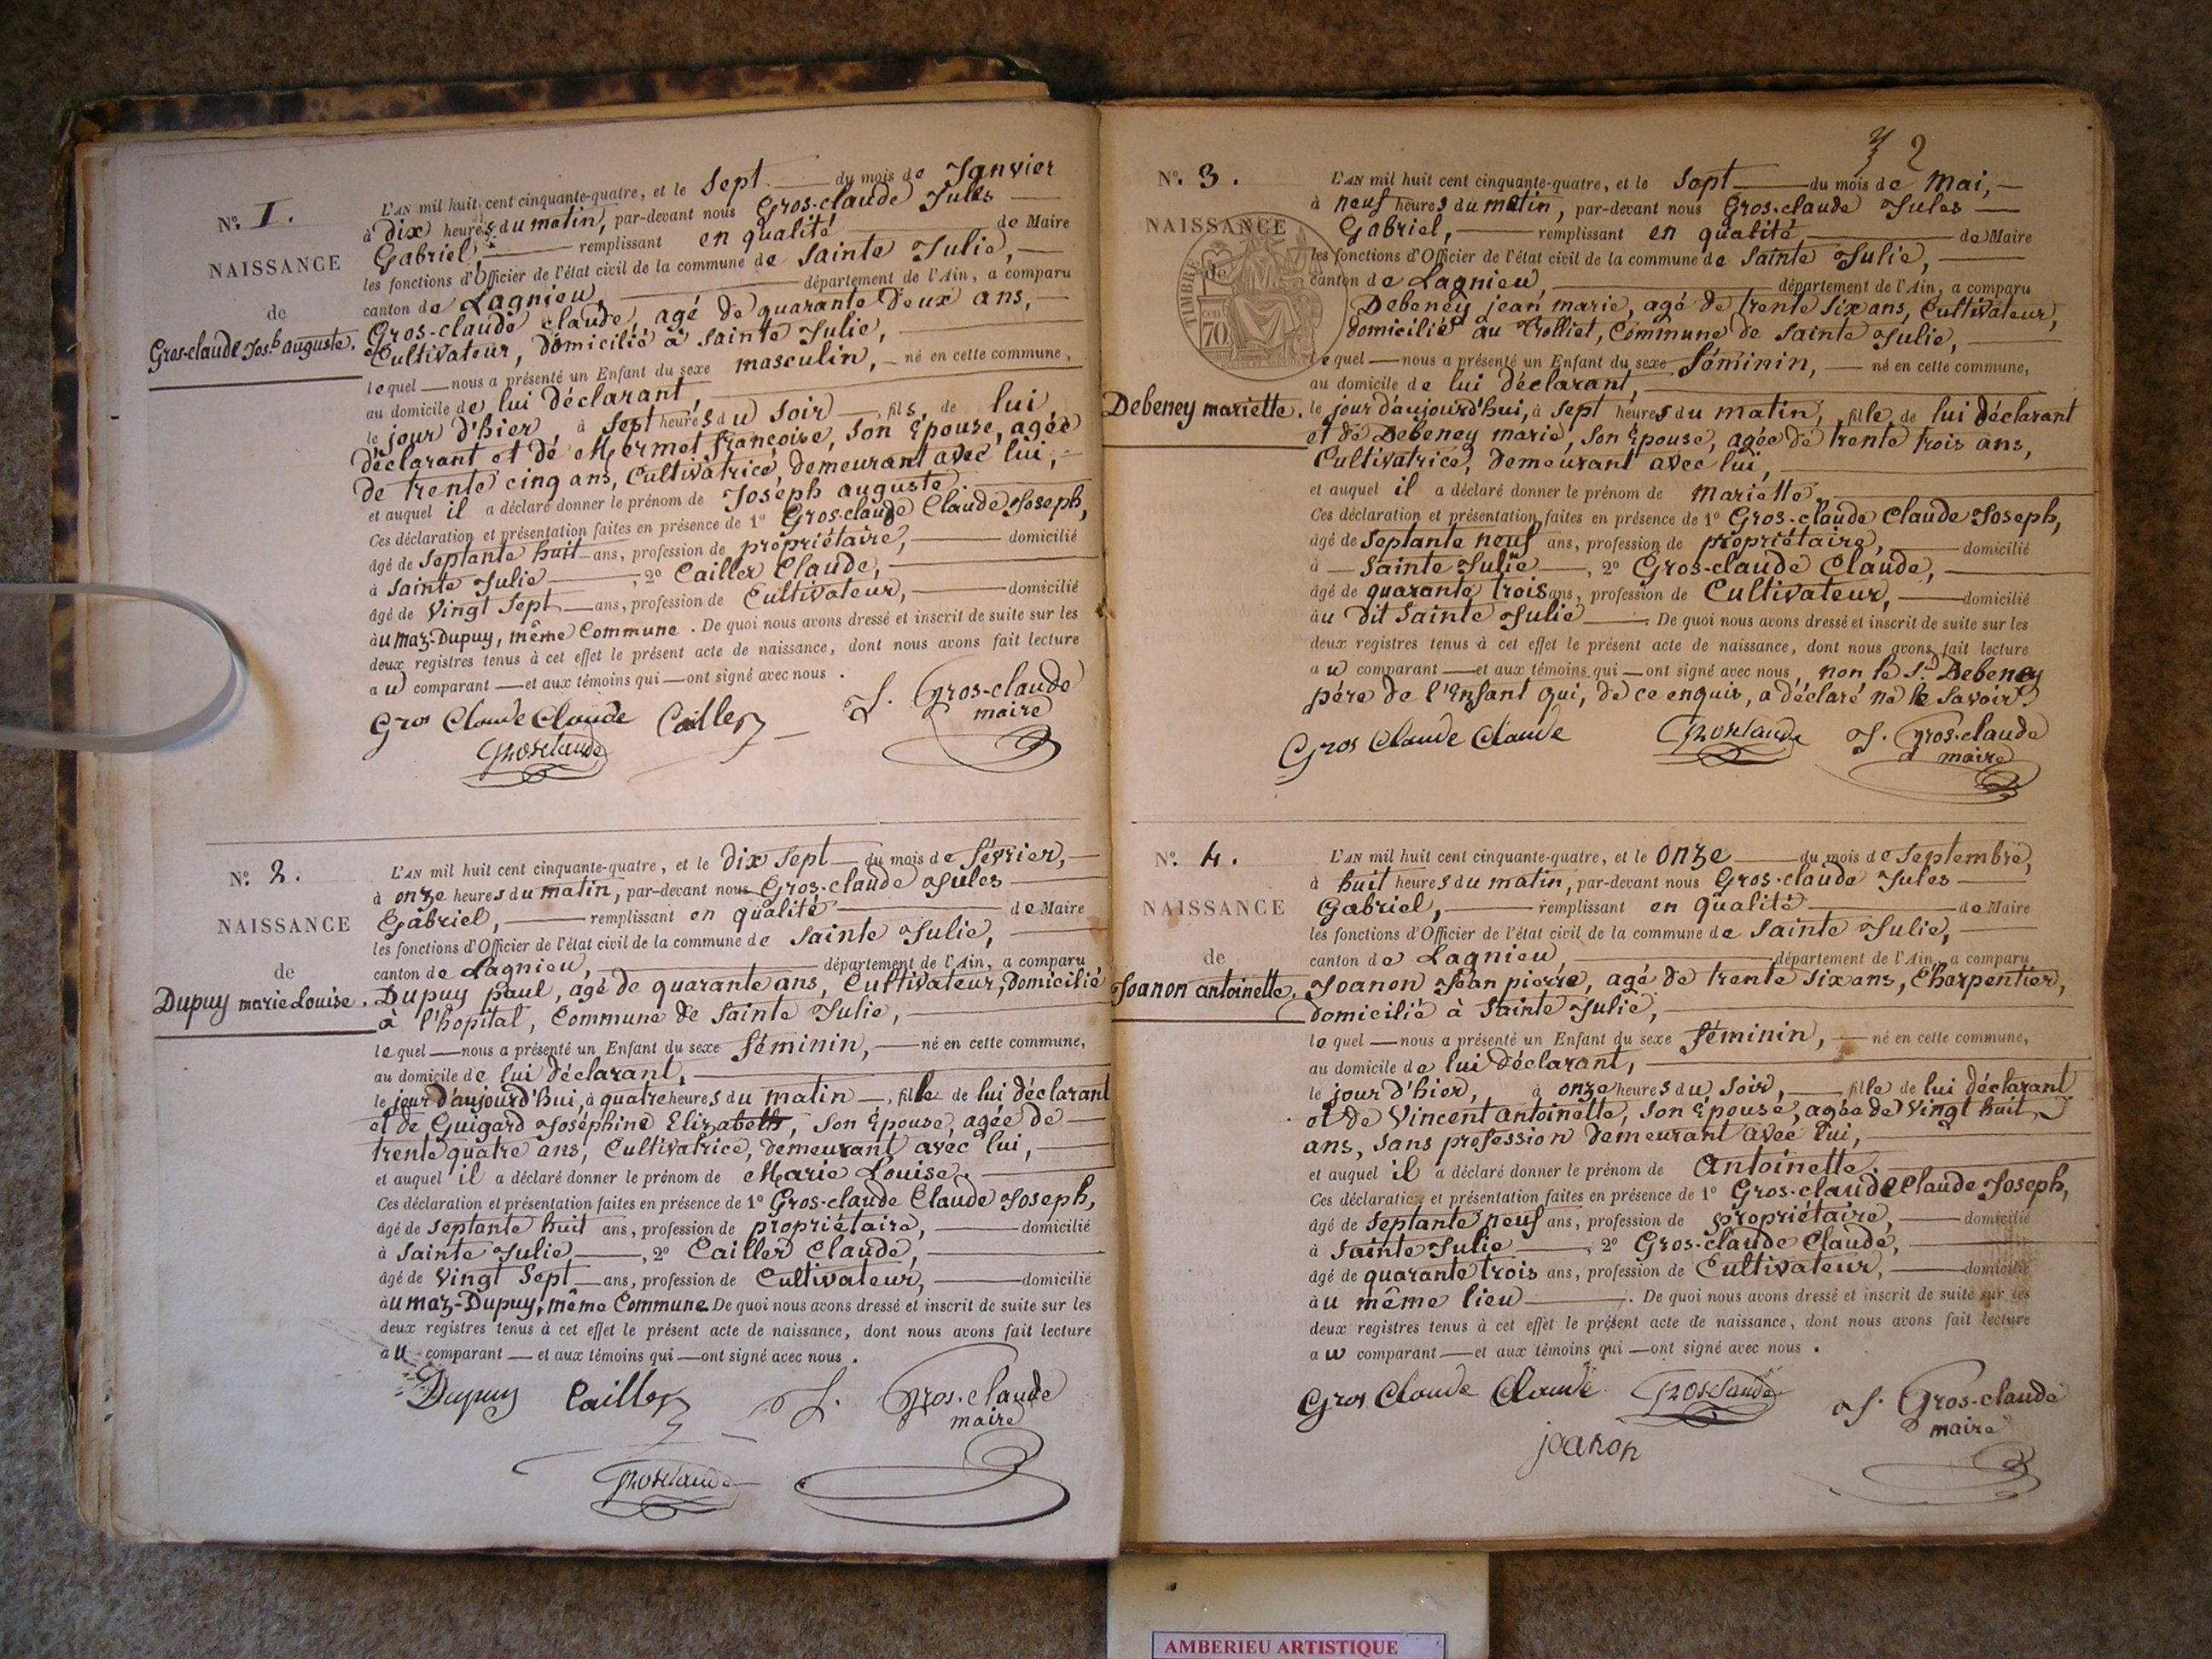 N.º 1.
NAISSANCE
de
Gros-claude Jos.h auguste.
L'AN mil huit cent cinquante-quatre, et le Sept du mois de Janvier
à Dix heures du matin, par-devant nous Gros-claude Jules
Gabriel, remplissant en qualité de Maire
les fonctions d'Officier de l'état civil de la commune de Sainte Julie,
canton de Lagnieu, département de l'Ain, a comparu
Gros-claude claude, agé de quarante Deux ans,
Cultivateur, domicilié à Sainte Julie,
lequel nous a présenté un Enfant du sexe masculin, né en cette commune,
au domicile de lui Déclarant,
le jour d'hier à Sept heures du Soir, fils, de lui
déclarant et de Mermet françoise, Son Epouse, agée
de trente cinq ans, Cultivatrice, demeurant avec lui,
et auquel il a déclaré donner le prénom de Joseph auguste.
Ces déclaration et présentation faites en présence de 1º Gros-claude Claude Joseph,
âgé de Septante huit ans, profession de propriétaire, domicilié
à Sainte Julie, 2º Cailler Claude,
âgé de Vingt Sept ans, profession de Cultivateur, domicilié
àu maz-Dupuy, même Commune. De quoi nous avons dressé et inscrit de suite sur les
deux registres tenus à cet effet le présent acte de naissance, dont nous avons fait lecture
au comparant et aux témoins qui ont signé avec nous.
Gros Claude Claude Cailler J. Gros-claude
maire
Grosclaude
N.º 2.
NAISSANCE
de
Dupuy marie Louise.
L'AN mil huit cent cinquante-quatre, et le Dix Sept du mois de février,
à onze heures du matin, par-devant nous Gros-claude Jules
Gabriel, remplissant en qualité de Maire
les fonctions d'Officier de l'état civil de la commune de Sainte Julie,
canton de Lagnieu, département de l'Ain, a comparu
Dupuy paul, agé de quarante ans, Cultivateur, Domicilié
à l'hopital, Commune de Sainte Julie,
lequel nous a présenté un Enfant du sexe féminin, né en cette commune,
au domicile de lui déclarant,
le jour d'aujourd'hui, à quatre heures du matin, fille de lui déclarant
et de Guigard Joséphine Elizabeth, Son Epouse, agée de
trente quatre ans, Cultivatrice, demeurant avec lui,
et auquel il a déclaré donner le prénom de Marie Louise.
Ces déclaration et présentation faites en présence de 1º Gros-claude Claude Joseph,
âgé de Septante huit ans, profession de propriétaire, domicilié
à Sainte Julie, 2º Cailler Claude,
âgé de Vingt Sept ans, profession de Cultivateur, domicilié
àu maz-Dupuy, même Commune. De quoi nous avons dressé et inscrit de suite sur les
deux registres tenus à cet effet le présent acte de naissance, dont nous avons fait lecture
au comparant et aux témoins qui ont signé avec nous.
Dupuy Cailler J. Gros-claude
maire
Grosclaude
2
N.º 3.
NAISSANCE
de
TIMBRE
70
Debeney mariette.
L'AN mil huit cent cinquante-quatre, et le Sept du mois de Mai,
à neuf heures du matin, par-devant nous Gros-claude Jules
Gabriel, remplissant en qualité de Maire
les fonctions d'Officier de l'état civil de la commune de Sainte Julie,
canton de Lagnieu, département de l'Ain, a comparu
Debeney jean marie, agé de trente Six ans, Cultivateur,
domicilié au Trolliet, Commune de Sainte Julie,
lequel nous a présenté un Enfant du sexe féminin, né en cette commune,
au domicile de lui déclarant,
le jour d'aujourd'hui, à Sept heures du matin, fille, de lui déclarant
et de Debeney marie, Son Epouse, agée de trente trois ans,
Cultivatrice, demeurant avec lui,
et auquel il a déclaré donner le prénom de mariette.
Ces déclaration et présentation faites en présence de 1º Gros-claude Claude Joseph,
âgé de Septante neuf ans, profession de propriétaire, domicilié
à Sainte Julie, 2º Gros-claude Claude,
âgé de quarante trois ans, profession de Cultivateur, domicilié
àu dit Sainte Julie. De quoi nous avons dressé et inscrit de suite sur les
deux registres tenus à cet effet le présent acte de naissance, dont nous avons fait lecture
au comparant et aux témoins qui ont signé avec nous, non le S.r Debeney
père de l'Enfant qui, de ce enquis, a déclaré ne le Savoir.
Gros Claude Claude Grosclaude J. Gros-claude
maire
N.º 4.
NAISSANCE
de
Joanon antoinette.
L'AN mil huit cent cinquante-quatre, et le onze du mois de Septembre,
à huit heures du matin, par-devant nous Gros-claude Jules
Gabriel, remplissant en qualité de Maire
les fonctions d'Officier de l'état civil de la commune de Sainte Julie,
canton de Lagnieu, département de l'Ain, a comparu
Joanon Jean pierre, agé de trente Six ans, Charpentier,
domicilié à Sainte Julie,
lequel nous a présenté un Enfant du sexe féminin, né en cette commune,
au domicile de lui Déclarant,
le jour d'hier, à onze heures du Soir, fille de lui déclarant
et de Vincent antoinette, Son Epouse, agée de Vingt huit
ans, Sans profession demeurant avec lui,
et auquel il a déclaré donner le prénom de Antoinette.
Ces déclaration et présentation faites en présence de 1º Gros-claude Claude Joseph,
âgé de Septante neuf ans, profession de propriétaire, domicilié
à Sainte Julie, 2º Gros-claude Claude,
âgé de quarante trois ans, profession de Cultivateur, domicilié
àu même lieu. De quoi nous avons dressé et inscrit de suite sur les
deux registres tenus à cet effet le présent acte de naissance, dont nous avons fait lecture
au comparant et aux témoins qui ont signé avec nous.
Gros Claude Claude Grosclaude J. Gros-claude
maire
joanon
AMBERIEU ARTISTIQUE